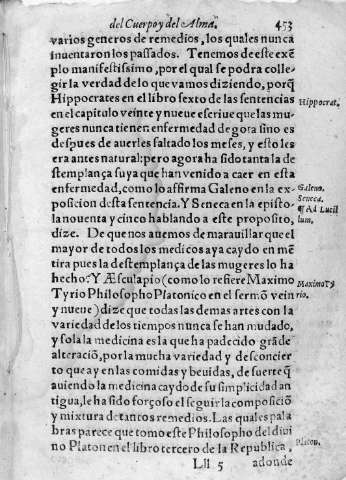 del Cuerpo y del Alma. 453
varios generos de remedios, los quales nunca
inuentaron los passados. Tenemos deste exē
plo manifestissimo, por el qual se podra colle-
gir la verdad de lo que vamos diziendo, porq̃
Hippocrates en el libro sexto de las sentencias
Hippocrat.
en el capitulo veinte y nueue escriue que las mu
geres nunca tienen enfermedad de gota sino es
despues de auerles faltado los meses, y esto les
era antes natural: pero agora ha sido tanta la de
stemplança suya que han venido a caer en esta
enfermedad, como lo affirma Galeno en la ex-
Galeno.
posicion desta sentencia. Y Seneca en la episto-
Seneca.
la nouenta y cinco hablando a este proposito,
¶ Ad Lucil
lum.
dize. De que nos auemos de marauillar que el
mayor de todos los medicos aya caydo en mē
tira pues la destemplança de las mugeres lo ha
hecho? Y Æsculapio (como lo refiere Maximo
Maximo Ty
Tyrio Philosopho Platonico en el sermō vein
rio.
y nueue) dize que todas las demas artes con la
variedad de los tiempos nunca se han mudado,
y sola la medicina es la que ha padecido grāde
alteraciō, por la mucha variedad y desconcier
to que ay en las comidas y beuidas, de suerte q̃
auiendo la medicina caydo de su simplicidad an
tigua, le ha sido forçoso el seguir la composiciō
y mixtura de tantos remedios. Las quales pala
bras parece que tomo este Philosopho del diui
no Platon en el libro tercero de la Republica,
Platon.
Lll 5 adonde